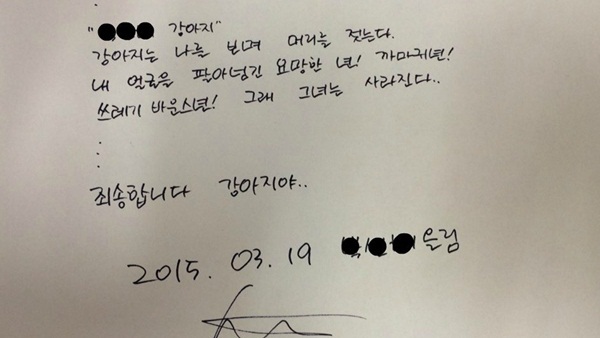 " 강아지"
강아지는 나를 보며 머리를 젓는다.
내 얼굴을 팔아넘긴 요망한 년! 까마귀년!
쓰레기 바운스년! 그래 그녀는 사라진다..
.
.
.
죄송합니다 강아지야..
2015. 03. 19 올림